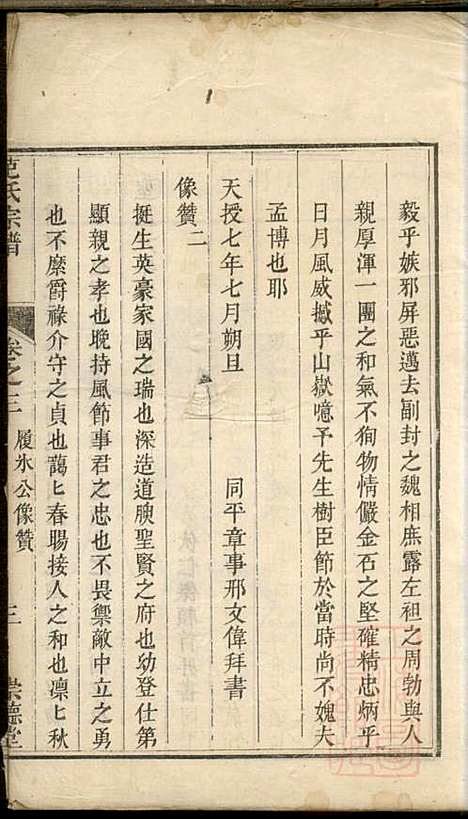 毅乎嫉邪屏惡邁去副封之魏相庶露左袒之周勃與人
親厚渾一團之和氣不狥物情儼金石之堅確精忠炳乎
日月風威撼乎山嶽噫予先生樹臣節於當時尚不媿夫
孟博也耶
天授七年七月朔旦　同平章事邢文偉拜書
像贊二
挺生英豪家國之瑞也深造道腴聖賢之府也幼登仕第
顯親之孝也晚持風節事君之忠也不畏禦敵中立之勇
也不縻爵祿介守之貞也藹匕春暘接人之和也凛匕秋
范氏宗譜　卷之三　履氷公像贊　三　崇德堂